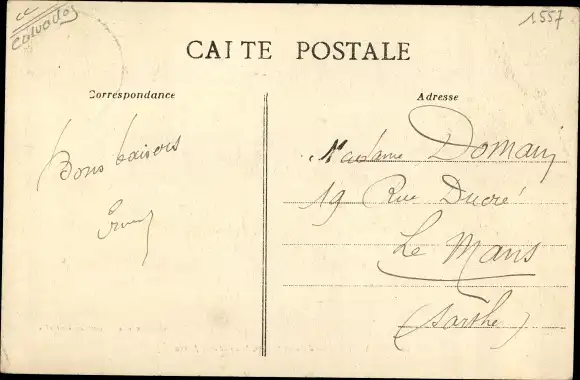 cc
Calvados
1557
CARTE POSTALE
Correspondance
Adresse
Bons baisers
Madame Domain
19 Rue Ducré
Le Mans
(Sarthe)